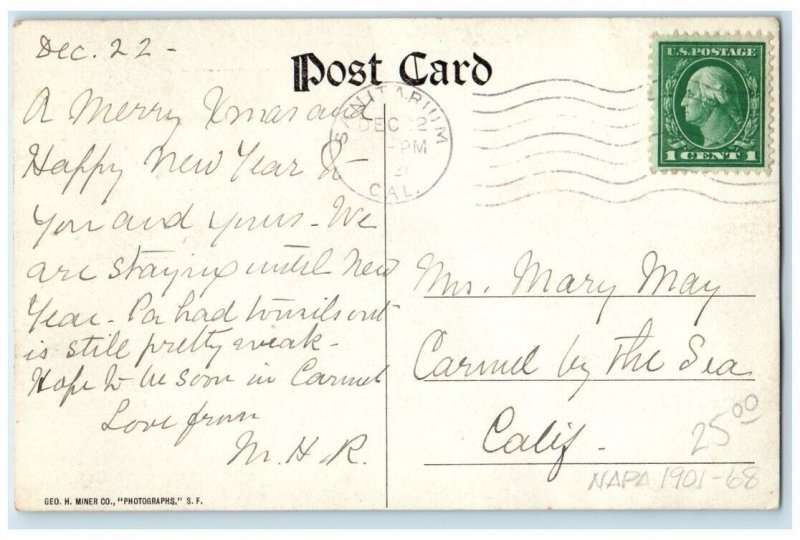 Dec. 22 -
Post Card
U.S. POSTAGE
1 CENT 1
SANITARIUM
DEC 22
-PM
CAL.
A Merry Xmas and
Happy New Year to
you and yours - We
are staying until New
Year. Pa had tonsils out
is still pretty weak -
Hope to be soon in Carmel
Love from
M. H. R.
Mrs. Mary May
Carmel by the Sea
Calif -
25 00
NAPA 1901-68
GEO. H. MINER CO., "PHOTOGRAPHS," S. F.